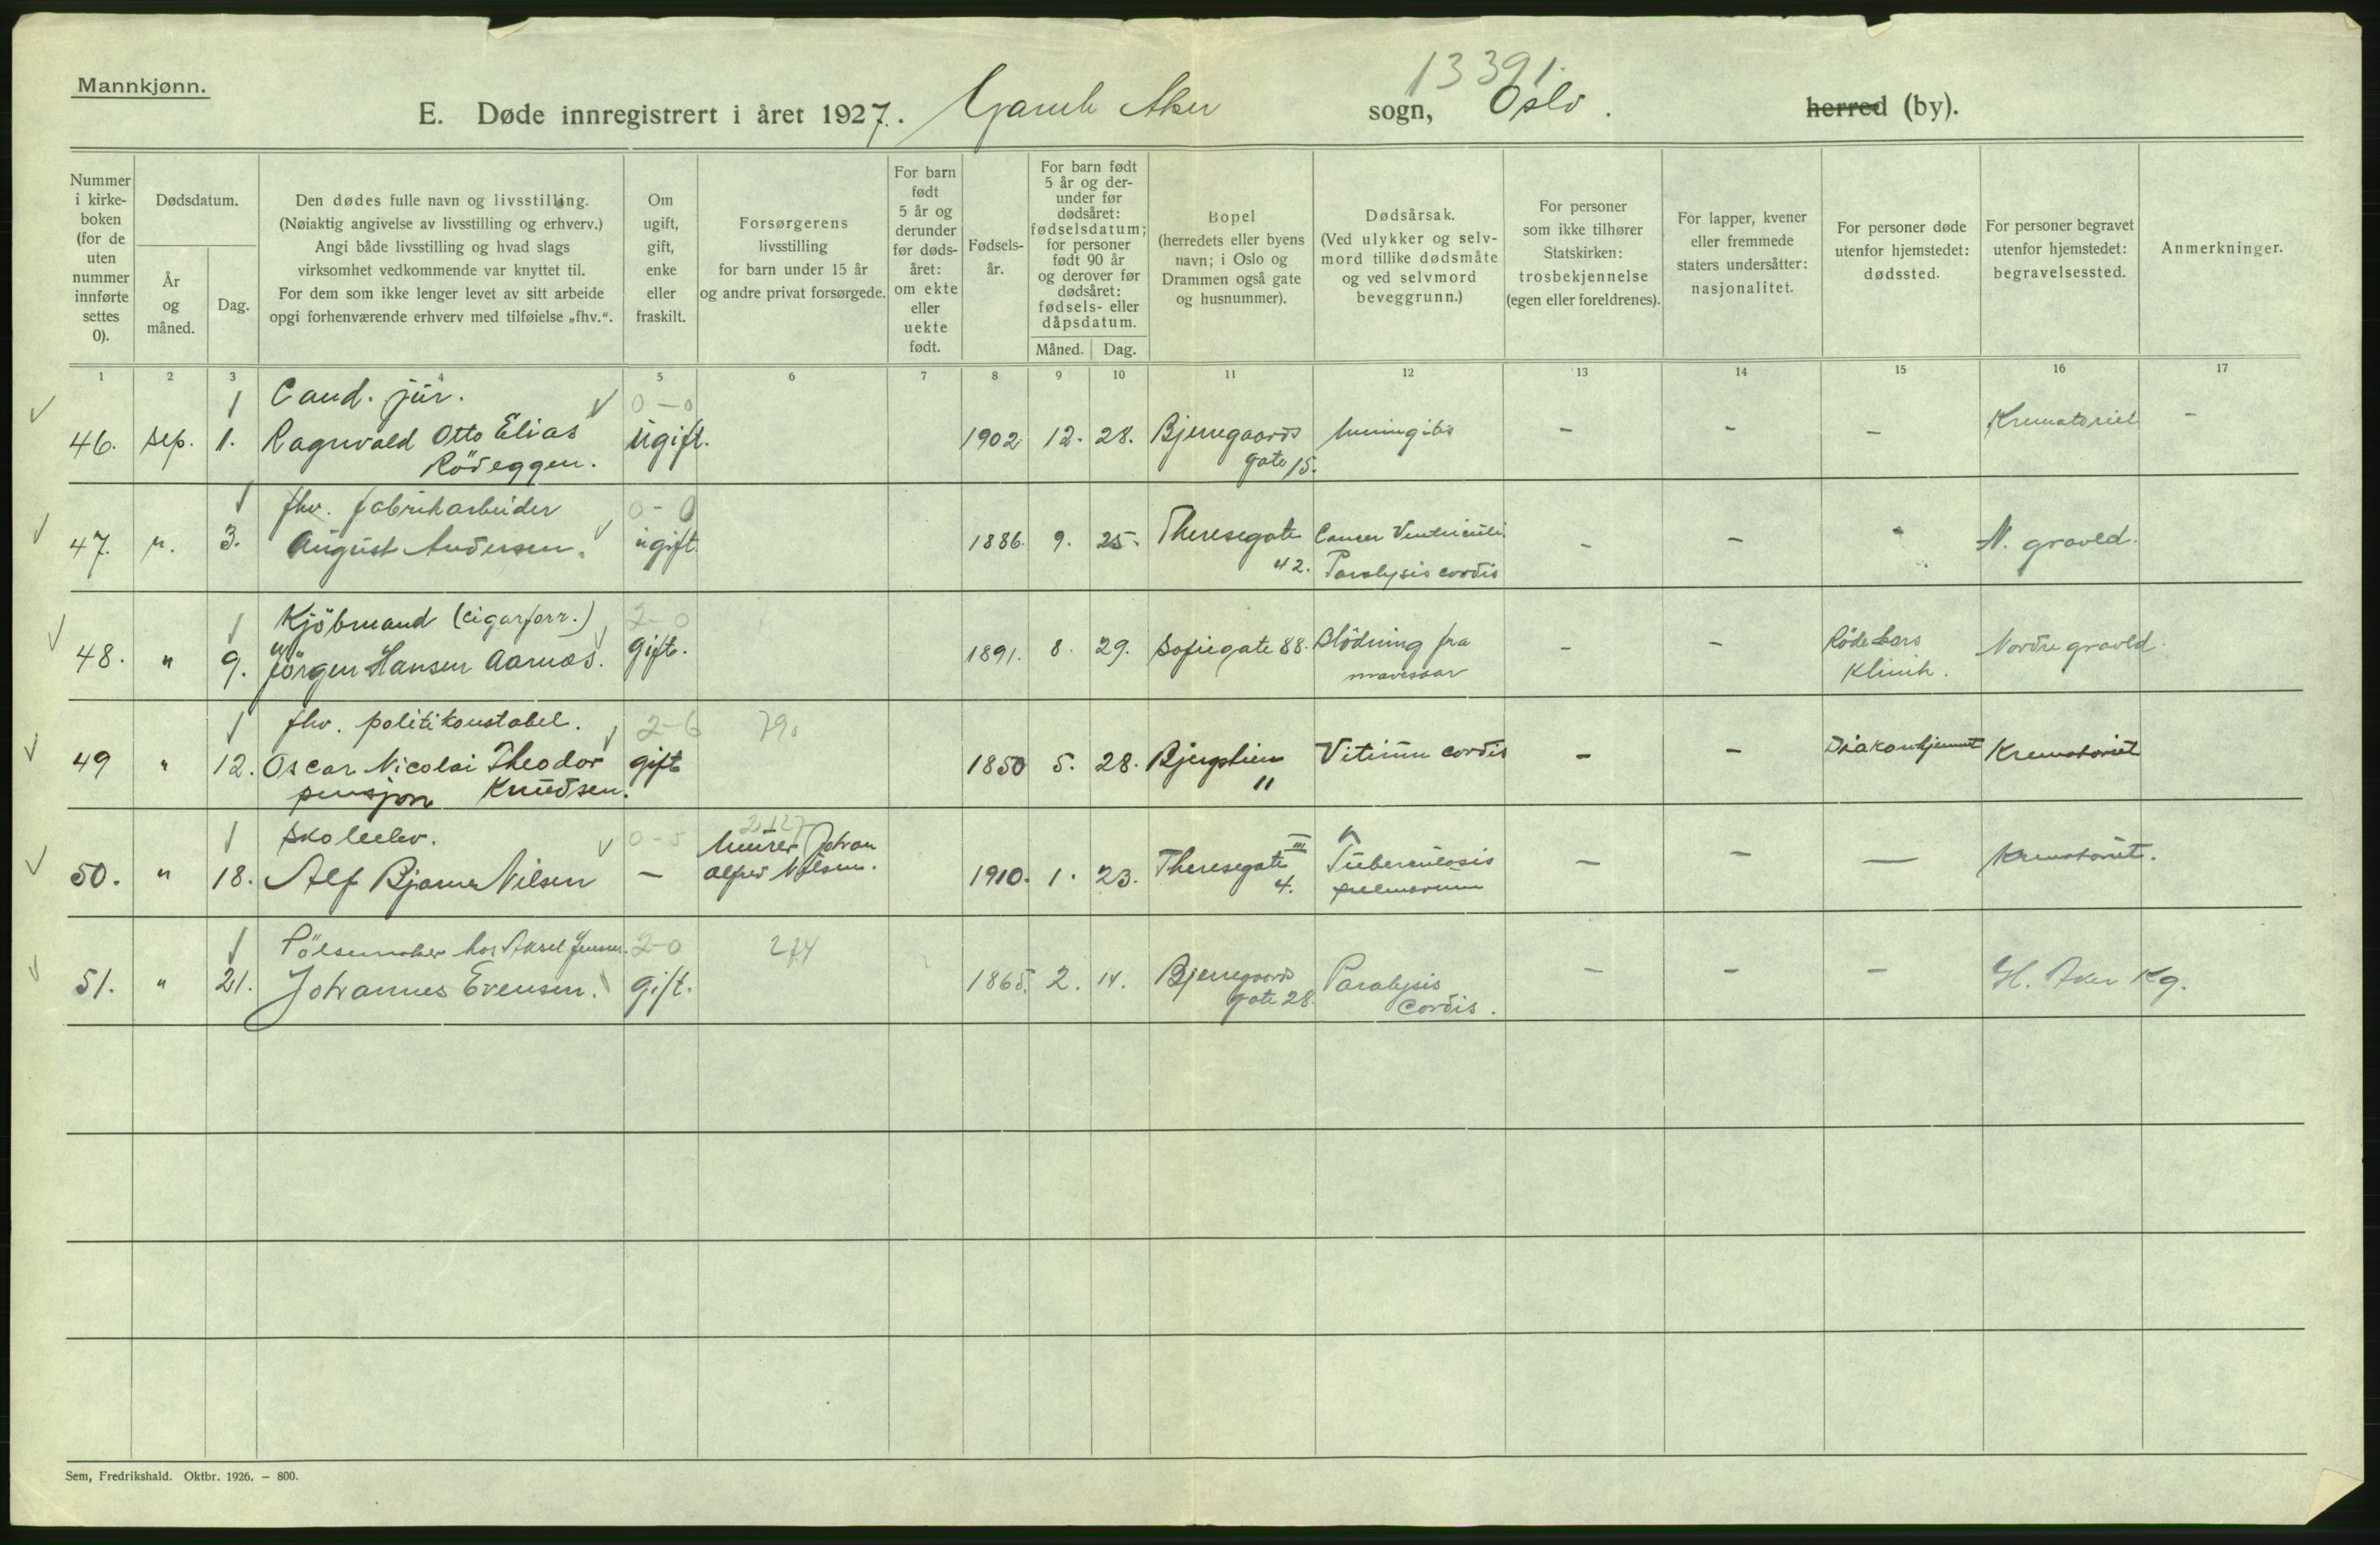 13391.
Mannkjønn.
E. Døde innregistrert i året 1927. Gamle Aker sogn, Oslo. herred (by).
Nummer i kirke-boken (for de uten nummer innførte settes 0).
Dødsdatum.
År og måned.
Dag.
Den dødes fulle navn og livsstilling.
(Nøiaktig angivelse av livsstilling og erhverv.)
Angi både livsstilling og hvad slags
virksomhet vedkommende var knyttet til.
For dem som ikke lenger levet av sitt arbeide
opgi forhenværende erhverv med tilføielse „fhv.“.
Om ugift, gift, enke eller fraskilt.
Forsørgerens
livsstilling
for barn under 15 år
og andre privat forsørgede.
For barn født 5 år og derunder før døds-året: om ekte eller uekte født.
Fødsels-år.
For barn født 5 år og der-under før dødsåret: fødselsdatum; for personer født 90 år og derover før dødsåret: fødsels- eller dåpsdatum.
Måned. Dag.
Bopel
(herredets eller byens
navn; i Oslo og
Drammen også gate
og husnummer).
Dødsårsak.
(Ved ulykker og selv-
mord tillike dødsmåte
og ved selvmord
beveggrunn.)
For personer
som ikke tilhører
Statskirken:
trosbekjennelse
(egen eller foreldrenes).
For lapper, kvener
eller fremmede
staters undersåtter:
nasjonalitet.
For personer døde
utenfor hjemstedet:
dødssted.
For personer begravet
utenfor hjemstedet:
begravelsessted.
Anmerkninger.
1 2 3 4 5 6 7 8 9 10 11 12 13 14 15 16 17
Cand. jur. 0-0
46. sep. 1. Ragnvald Otto Elias ugift. 1902 12. 28. Bjerregaards Meningitis - - - Krematoriet -
Rödeggen. gate 15.
fhv. fabrikarbeider 0-0
47. 3. August Andersen. ugift 1886. 9. 25. Theresegate Cancer Ventriculi. - - - N. gravld.
42. Paralysis cordis
Kjöbmand (cigarforr.) 2-0
48. " 9. Jörgen Hansen Aarnæs. gift. 1891. 8. 29. Sofiegate 88. Blödning fra - - Röde Kors Nordre gravld.
mavesaar Klinik.
fhv. politikonstabel. 2-6 790
49 " 12. Oscar Nicolai Theodor gift 1850 5. 28. Bjergstien Vitium cordis - - Diakonhjemmet Krematoriet
pensjon Knudsen. 11
Skoleelev. 0-5 Murer Johan
50. " 18. Alf Bjarne Nilsen - Alfred Nilsen. 1910. 1. 23. Theresegate III Tuberculosis - - - Krematoriet.
4. pulmonum
Pölsemaker hos Aksel Jensen. 2-0 274
51. " 21. Johannes Evensen. gift. 1865. 2. 14. Bjerregaards Paralysis - - - Gl. Aker Kg.
gate 28 Cordis.
Sem, Fredrikshald. Oktbr. 1926. – 800.